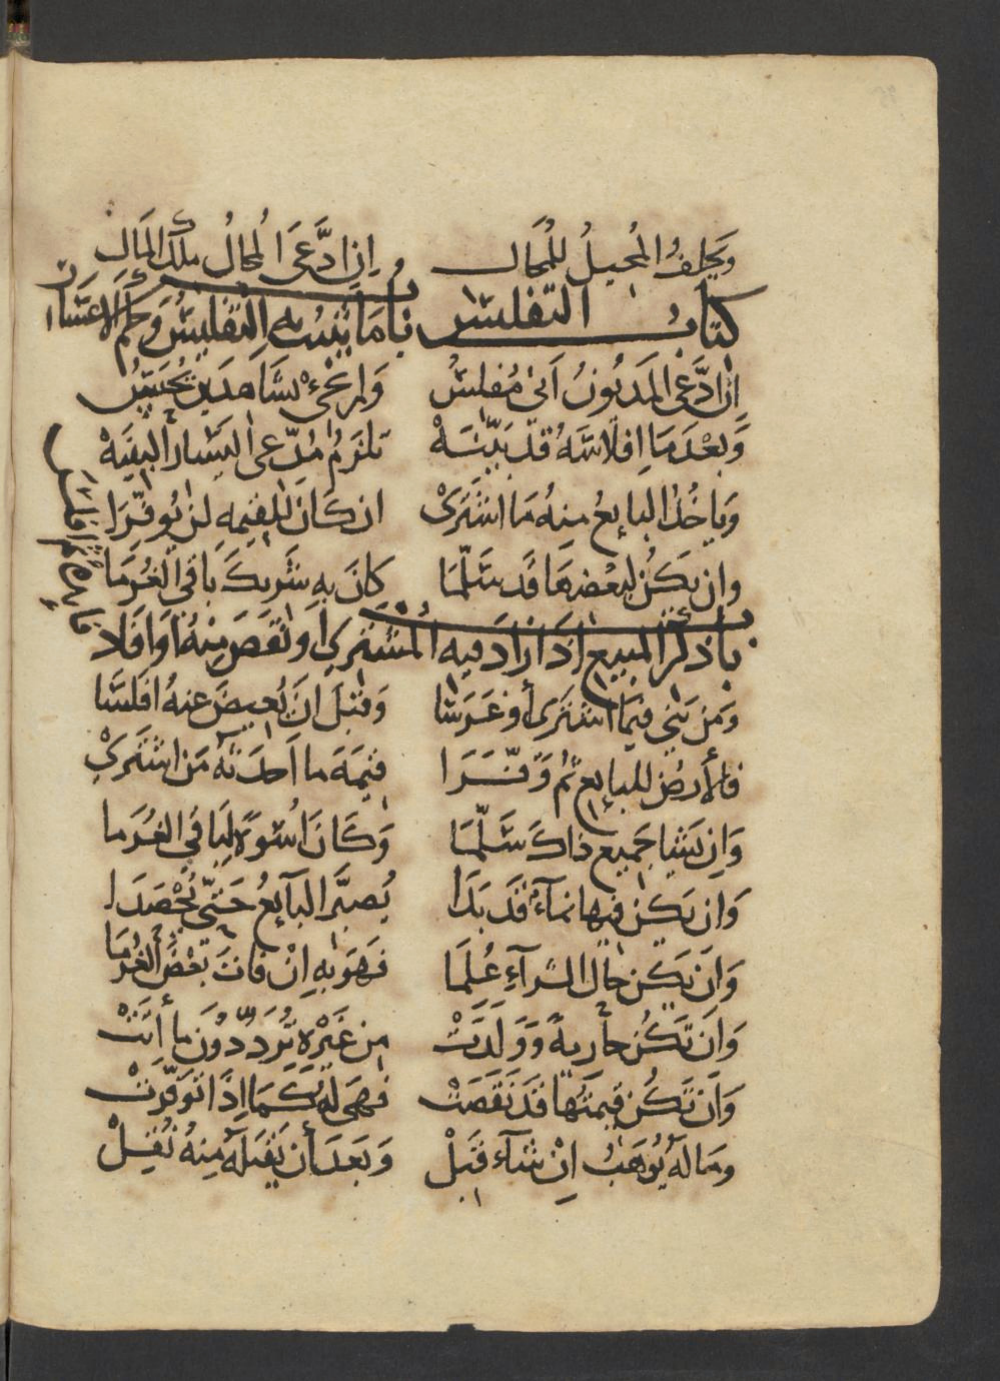 وَيحلفُ المُحيلُ للمُحَال وانِ ادَّعَى المُحالُ ملكَ المَال
كتاب التفليس بابُ مَا يثبتُ بهِ التفليسُ وَحكم الاعسَار
اِن ادَّعَى المَديُونُ اَنى مُفلسُ وَلم يَجىْ بشَاهدَين يُحبَسُ
وَبعْدَمَا اِفلاسَهُ قدْ بَيّنَهْ تلزَمُ مُدّعى اليسَار البينَهْ
وَياخُذ البايعُ مِنهُ مَا اشترَىْ ان كانَ للقيمه لن يُوفّرَا
وان يكنْ لبَعْضِهَا قَد سَلّمَا كانَ بهِ شَريكَ بَاقي الغُرَمَا
باب ذكر المبيع اِذَا زادَ فيه المُشتري اَو نقَصَ مِنهُ اَوافلا
وَمَن بَنى فيمَا اشترَى أو غَرَسَا وَقبْلَ انَ يُعيضَ عنهُ افلسَا
فالأرضُ للبايع ثُم وَفّرَا قيمَةَ ما اَحدَثَهُ مَن اشترَىْ
وَاِن يَشَا جَميع ذاكَ سَلّمَا وَكَانَ اُسْوَةً لبَاقي الغُرَما
وَان يَكن فيها نمآءٌ قَد بَدَا يُصبَّر البَآيعُ حَتىّ يُحْصَدَا
وَاِن يَكن حَال الشرآءِ عُلمَا فَهوَ بهِ اِنْ فاتَ بَعْضُ الغُرَمَا
وَاَن تَكُن جاريةً وَوَلَدَتْ مِن غَيْرهِ تُردّ دُونَ ما أتَتْ
وَاَن تَكُن قيمَتُها قدْ نَقَصَتْ فَهىَ لهُ كمَا اِذَا تَوَفّرَتْ
ومَا لَهُ يُوهَبُ اِنْ شآءَ قَبلْ وَبَعدَ أن يَقبَلَهُ مِنهُ نُقِلْ